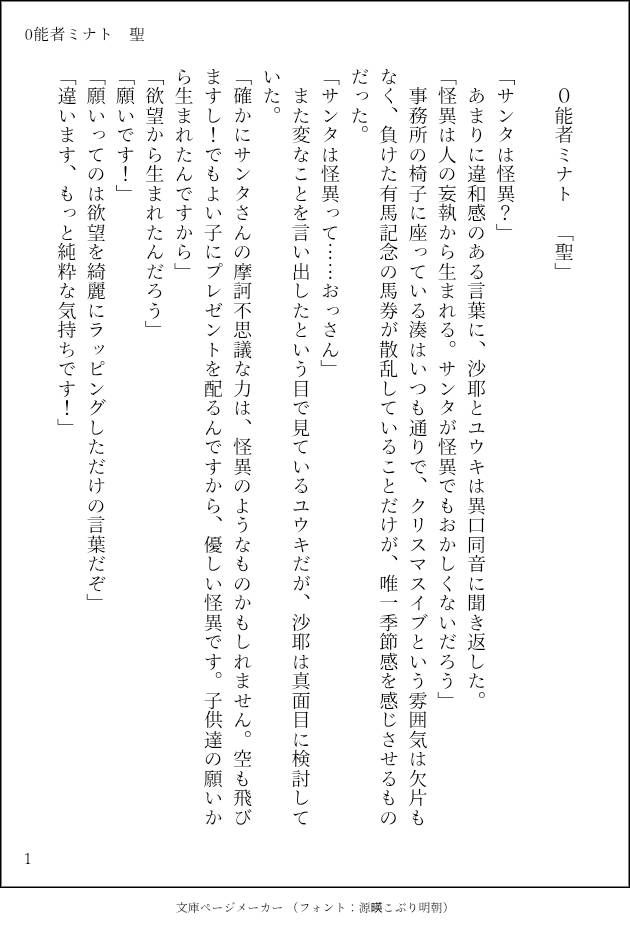 0能者ミナト　聖
０能者ミナト　「聖」
「サンタは怪異？」
　あまりに違和感のある言葉に、沙耶とユウキは異口同音に聞き返した。
「怪異は人の妄執から生まれる。サンタが怪異でもおかしくないだろう」
　事務所の椅子に座っている湊はいつも通りで、クリスマスイブという雰囲気は欠片も
なく、負けた有馬記念の馬券が散乱していることだけが、唯一季節感を感じさせるもの
だった。
「サンタは怪異って……おっさん」
　また変なことを言い出したという目で見ているユウキだが、沙耶は真面目に検討して
いた。
「確かにサンタさんの摩訶不思議な力は、怪異のようなものかもしれません。空も飛び
ますし！でもよい子にプレゼントを配るんですから、優しい怪異です。子供達の願いか
ら生まれたんですから」
「欲望から生まれたんだろう」
「願いです！」
「願いってのは欲望を綺麗にラッピングしただけの言葉だぞ」
「違います、もっと純粋な気持ちです！」
1
文庫ページメーカー（フォント：源暎こぶり明朝）